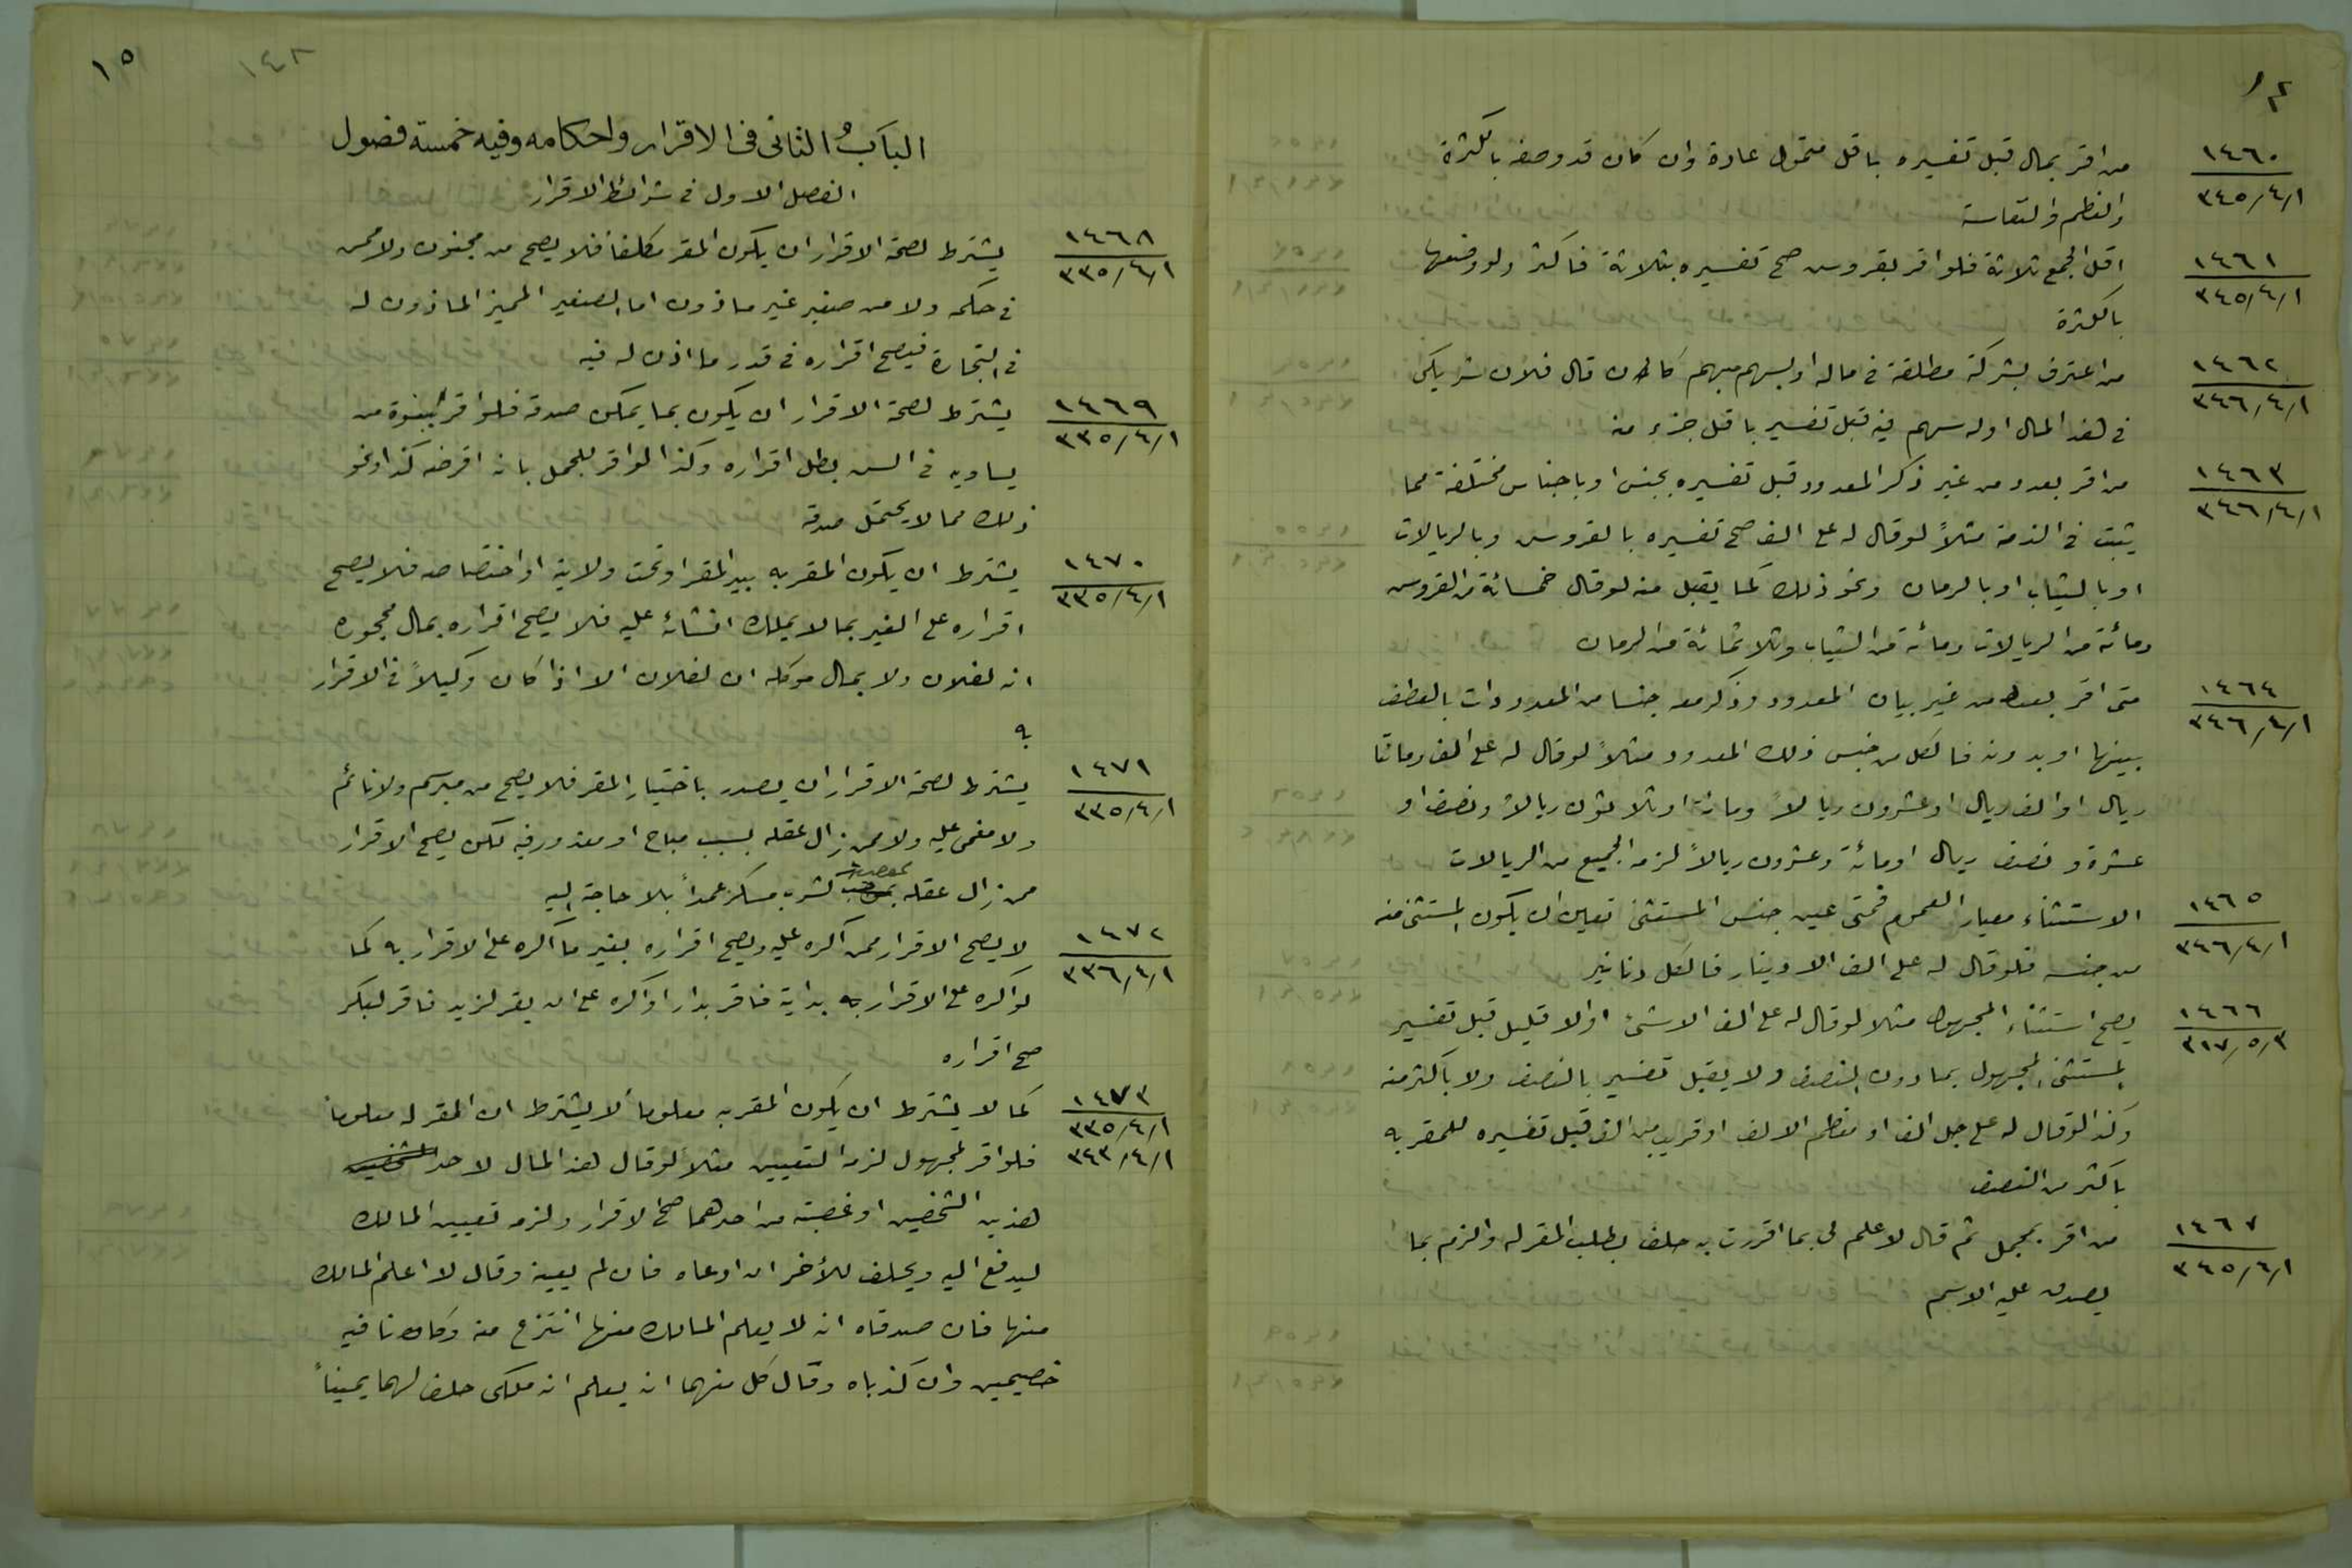 ١٤
١٤٦٠ من اقر بمال قبل تفسيره باقل متمول عادة وان كان قد وصفه بالكثرة
٣٤٥/٤/١ والعظم والنفاسة
١٤٦١ اقل الجمع ثلاثة فلو اقر بقروس صح تفسيره بثلاثة فاكثر ولو وصفها
٣٤٥/٤/١ بالكثرة
١٤٦٢ من اعترف بشركة مطلقة في ماله او بسهم مبهم كان قال فلان شريكي
٣٤٦/٤/١ في هذا المال او له سهم فيه قبل تفسير باقل جزء منه
١٤٦٣ من اقر بعدد من غير ذكر المعدود قبل تفسيره بجنس او باجناس مختلفة مما
٣٤٦/٤/١ يثبت في الذمة مثلاً لو قال له علي الف صح تفسيره بالقروس وبالريالات
او بالثياب او بالرمان ونحو ذلك كما يقبل منه لو قال خمسائة من القروس
ومائة من الريالات ومائة من الثياب وثلاثمائة من الرمان
١٤٦٤ متى اقر بعدد من غير بيان المعدود وذكر معه جنسا من المعدودات بالعطف
٣٤٦/٤/١ بينها او بدونه فالكل من جنس ذلك المعدود مثلاً لو قال له علي الف ومائتا
ريال او الف ريال او عشرون ريالاً ومائة او ثلاثون ريالاً ونصف او
عشرة ونصف ريال او مائة وعشرون ريالاً لزمه الجميع من الريالات
١٤٦٥ الاستثناء معيار العموم فمتى عين جنس المستثنى تعين ان يكون المستثنى منه
٣٤٦/٤/١ من جنسه فلو قال له علي الف الا دينار فالكل دنانير
١٤٦٦ يصح استثناء المجهول مثلا لو قال له علي الف الا شئ او الا قليل قبل تفسير
٣١٧/٥/٣ المستثنى المجهول بما دون النصف ولا يقبل تفسير بالنصف ولا باكثر منه
وكذا لو قال له علي جل الف او معظم الالف او قريب من الف قبل تفسيره للمقر به
باكثر من النصف
١٤٦٧ من اقر بمجمل ثم قال لا علم لي بما اقررت به حلف بطلب المقر له والزم بما
٣٤٥/٤/١ يصدق عليه الاسم
١٥ ١٤٨
الباب الثاني في الاقرار واحكامه وفيه خمسة فصول
الفصل الاول في شرائط الاقرار
١٤٦٨ يشترط لصحة الاقرار ان يكون المقر مكلفاً فلا يصح من مجنون ولا ممن
٣٣٥/٤/١ في حكمه ولا من صغير غير ماذون اما الصغير المميز الماذون له
في التجارة فيصح اقراره في قدر ما اذن له فيه
١٤٦٩ يشترط لصحة الاقرار ان يكون بما يمكن صدقه فلو اقر ببنوة من
٣٣٥/٤/١ يساويه في السن بطل اقراره وكذا لو اقر للحمل بانه اقرضه كذا ونحو
ذلك مما لا يحتمل صدقه
١٤٧٠ يشترط ان يكون المقر به بيد المقر او تحت ولاية او اختصاصه فلا يصح
٣٣٥/٤/١ اقراره على الغير بما لا يملك انشائه عليه فلا يصح اقراره بمال محجوره
انه لفلان ولا بمال موكله ان لفلان الا اذا كان وكيلاً في الاقرار
به
١٤٧١ يشترط لصحة الاقرار ان يصدر باختيار المقر فلا يصح من مبرسم ولا نائم
٣٣٥/٤/١ ولا مغمى عليه ولا ممن زال عقله بسبب مباح او معذور فيه لكن يصح الاقرار
ممن زال عقله بمعصية كشرب مسكر عمداً بلا حاجة اليه
١٤٧٢ لا يصح الاقرار ممن اكره عليه ويصح اقراره بغير ما اكره على الاقرار به كما
٣٣٦/٤/١ لو اكره على الاقرار به بداية فاقر بدار او اكره على ان يقر لزيد فاقر لبكر
صح اقراره
١٤٧٣ كما لا يشترط ان يكون المقر به معلوماً لا يشترط ان المقر له معلوماً
٣٣٥/٤/١
٣٤٣/٤/١ فلو اقر لمجهول لزمه التعيين مثلاً لو قال هذا المال لاحد
هذين الشخصين او غصبته من احدهما صح الاقرار ولزمه تعيين المالك
ليدفع اليه ويحلف للأخر ان ادعاه فان لم يعينه وقال لا اعلم المالك
منها فان صدقاه انه لا يعلم المالك منها انتزع منه وكانا فيه
خصيمين وان كذباه وقال كل منهما انه يعلم انه ملكي حلف لهما يميناً